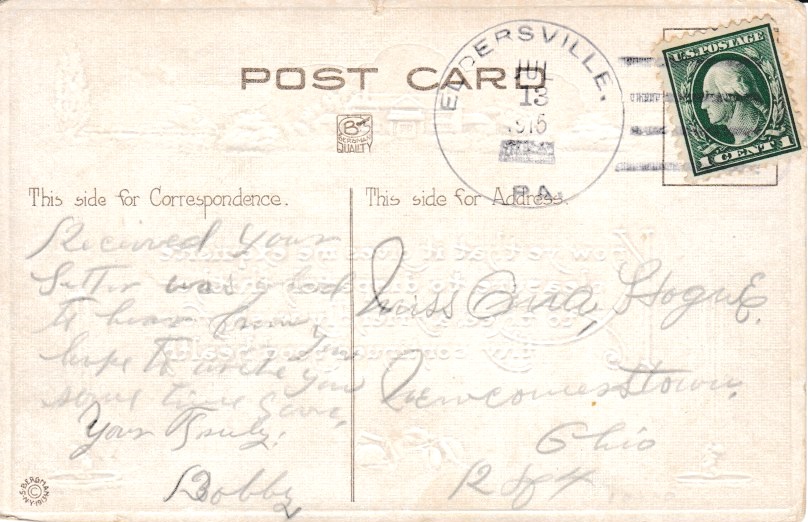 POST CARD
ELDERSVILLE,
JUL
13
1915
PA.
U.S. POSTAGE
1 CENT 1
B
BERGMAN
QUALITY
This side for Correspondence.
Received your
letter was glad
to hear from you
hope to write you
some time soon,
Your Truly.
Bobby
This side for Address.
Miss Oma Hogue.
Newcomerstown,
Ohio
R F 4
S. BERGMAN
N.Y. 1913
©